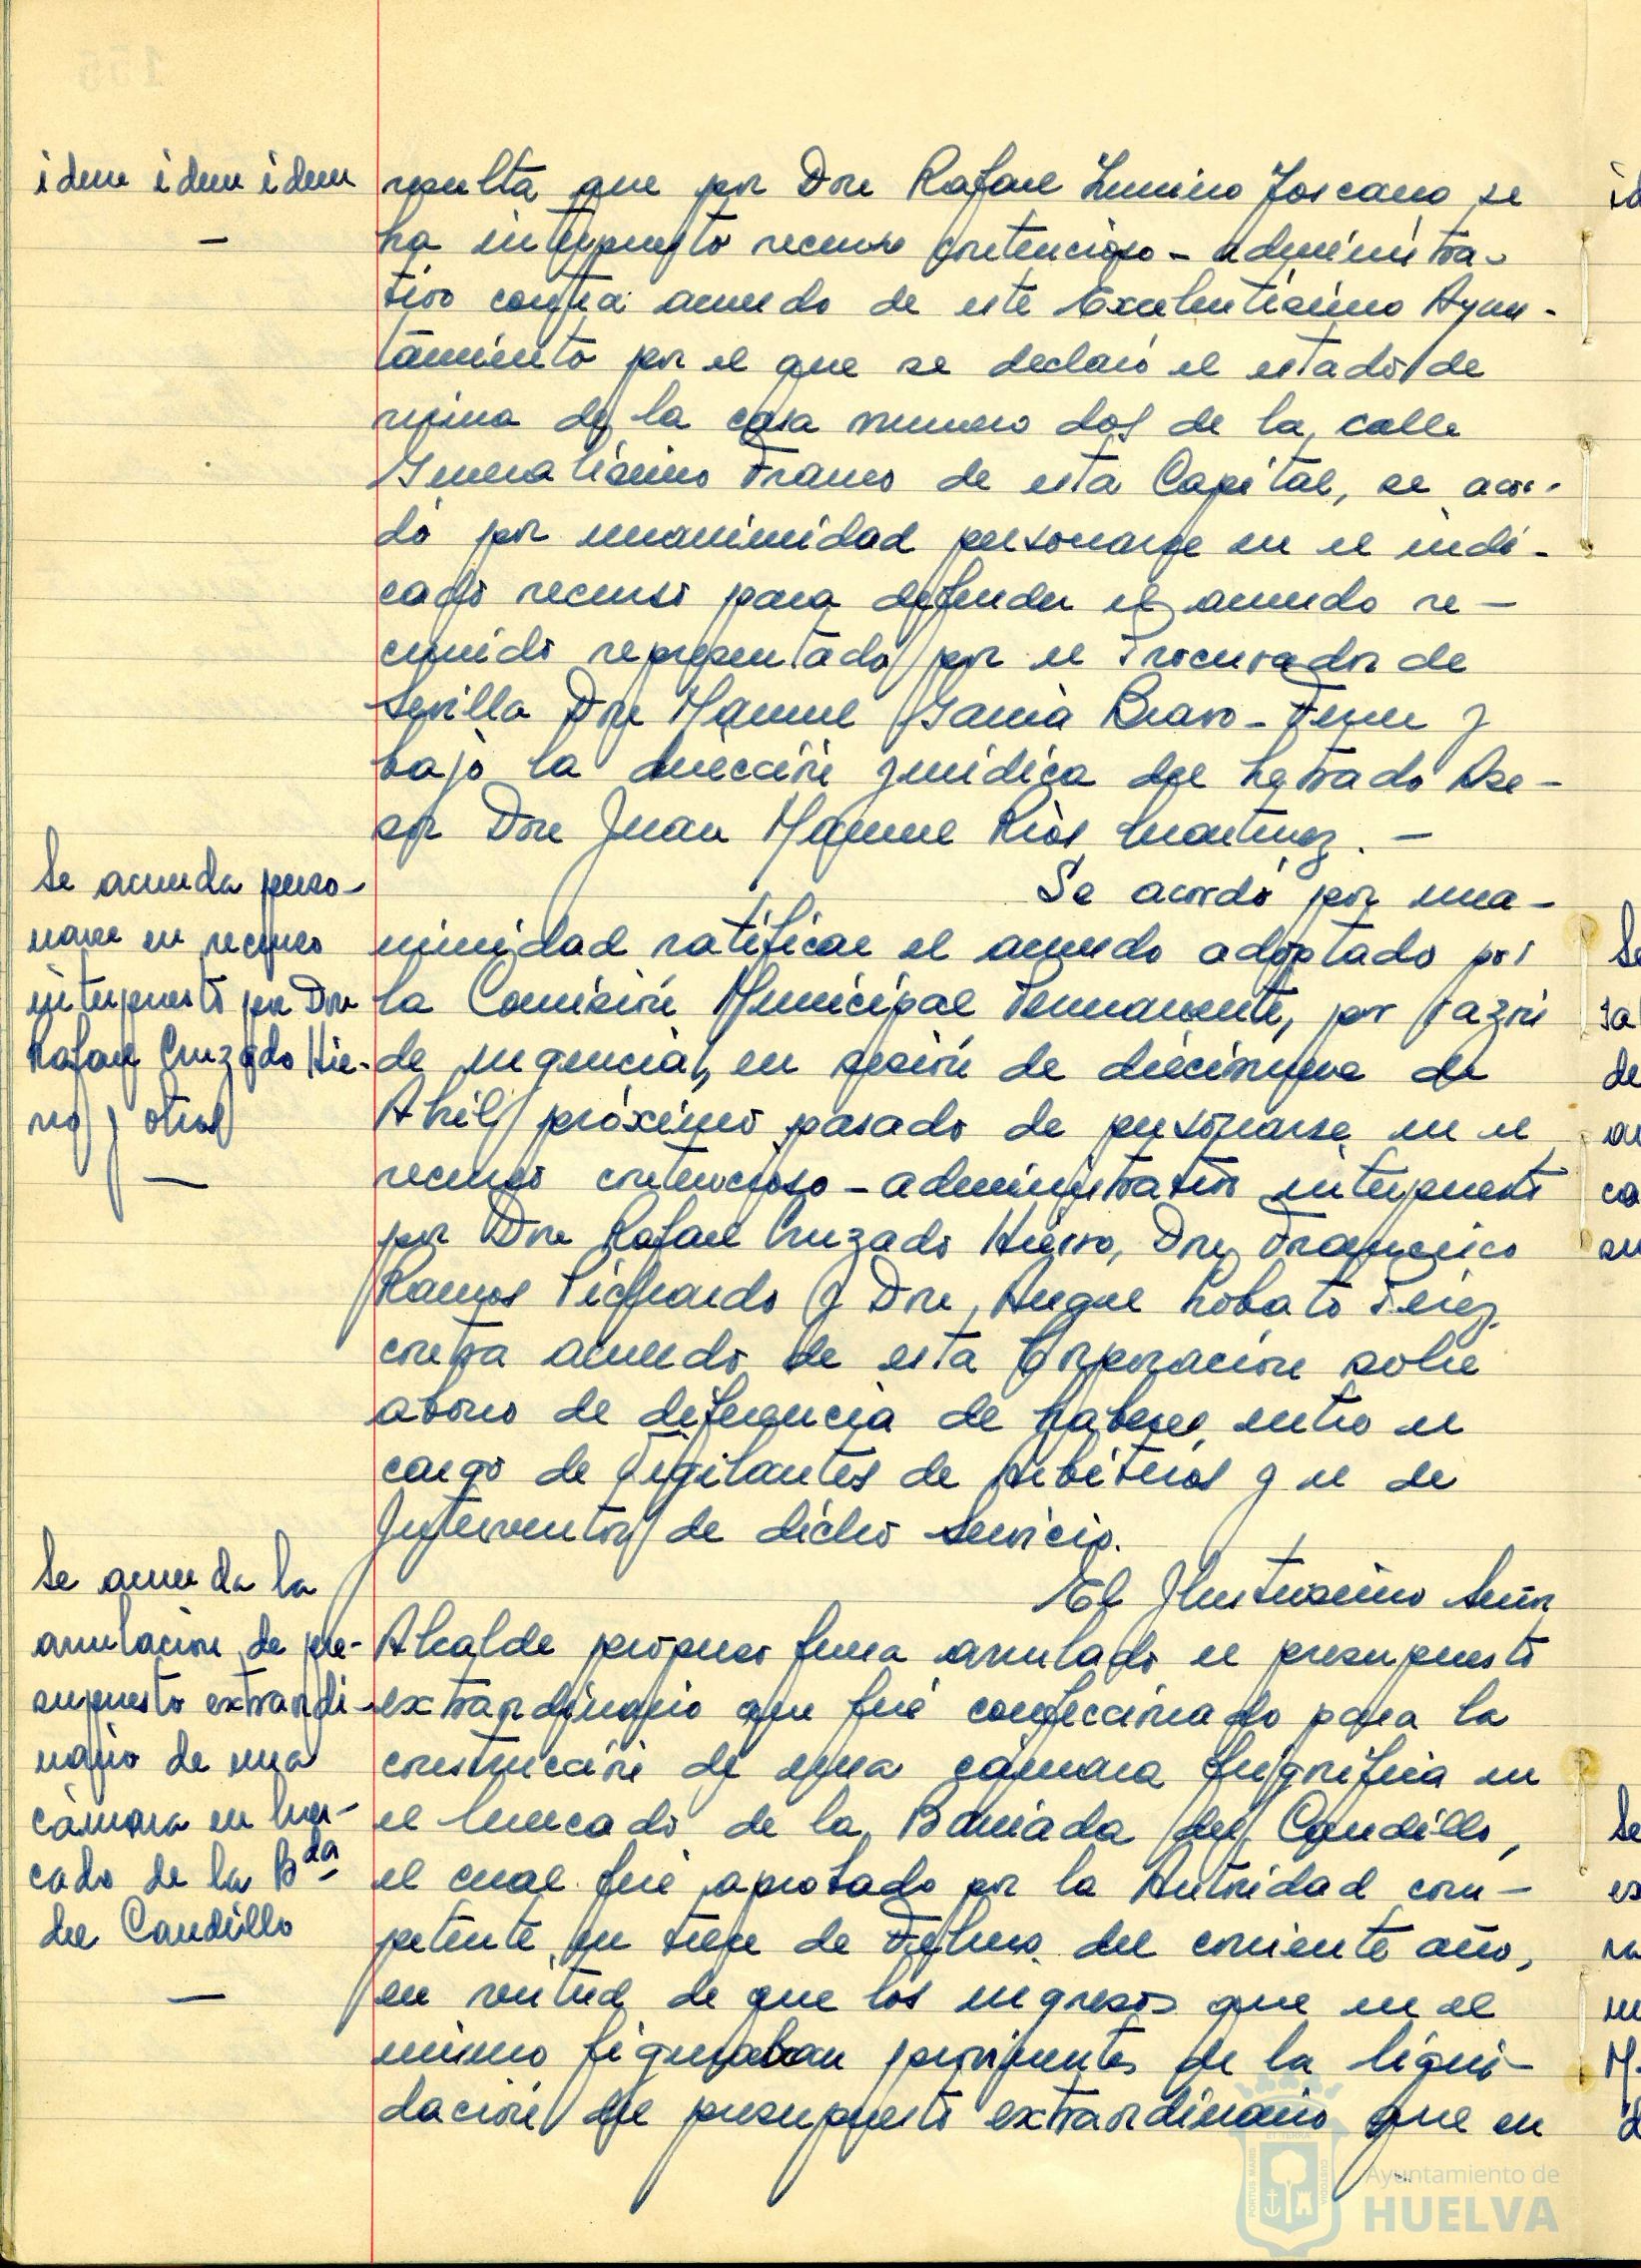 idem idem idem
resulta que por Don Rafael Toscano se
ha interpuesto recurso contencioso-administra-
tivo contra acuerdo de este Excelentísimo Ayun-
tamiento por el que se declaró el estado de
ruina de la casa numero dos de la calle
Generalísimo Franco de esta Capital, se acor-
dó por unanimidad personarse en el indi-
cado recurso para defender el acuerdo re-
currido representado por el Procurador de
Sevilla Don Manuel García Bravo-Ferrer y
bajo la dirección jurídica del Letrado Ase-
sor Don Juan Manuel Ríos Martinez. -
Se acuerda perso-
narse en recurso
interpuesto por Don
Rafael Cruzado Hie-
rro y otros
Se acordó por una-
nimidad ratificar el acuerdo adoptado por
la Comisión Municipal Permanente, por razón
de urgencia, en sesión de diecinueve de
Abril próximo pasado de personarse en el
recurso contencioso-administrativo interpuesto
por Don Rafael Cruzado Hierro, Don Francisco
Ramos Pichardo y Don Angel Lobato Perez
contra acuerdo de esta Corporación sobre
abono de diferencia de haberes entre el
cargo de Vigilantes de Arbitrios y el de
Interventor de dicho Servicio.
Se acuerda la
anulación de pre-
supuesto extraordi-
nario de una
cámara en Mer-
cado de la Bda
del Caudillo
El Ilustrísimo Señor
Alcalde propuso fuera anulado el presupuesto
extraordinario que fué confeccionado para la
construcción de una cámara frigorifica en
el Mercado de la Barriada del Caudillo,
el cual fué aprobado por la Autoridad com-
petente en trece de Febrero del corriente año,
en virtud de que los ingresos que en el
mismo figuraban provinentes de la liqui-
dación del presupuesto extraordinario que en
Ayuntamiento de
HUELVA